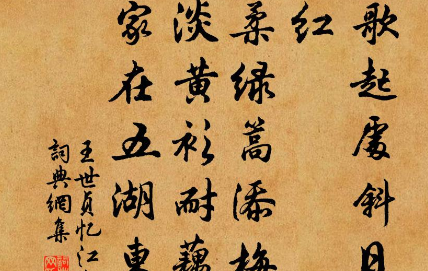 歌起處斜日
红
柔绿蒿添梅
淡黄衫耐藕
家在五湖東
王世贞忆江
詞典網集